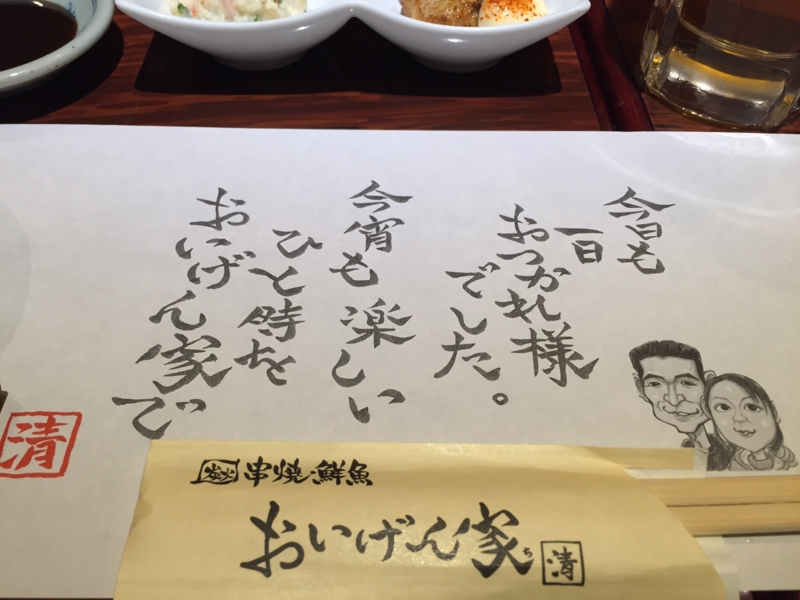 今日も
一日
おつかれ様
でした。
今宵も楽しい
ひと時を
おいげん家で
清
炭火 串焼・鮮魚
おいげん家
ち
清